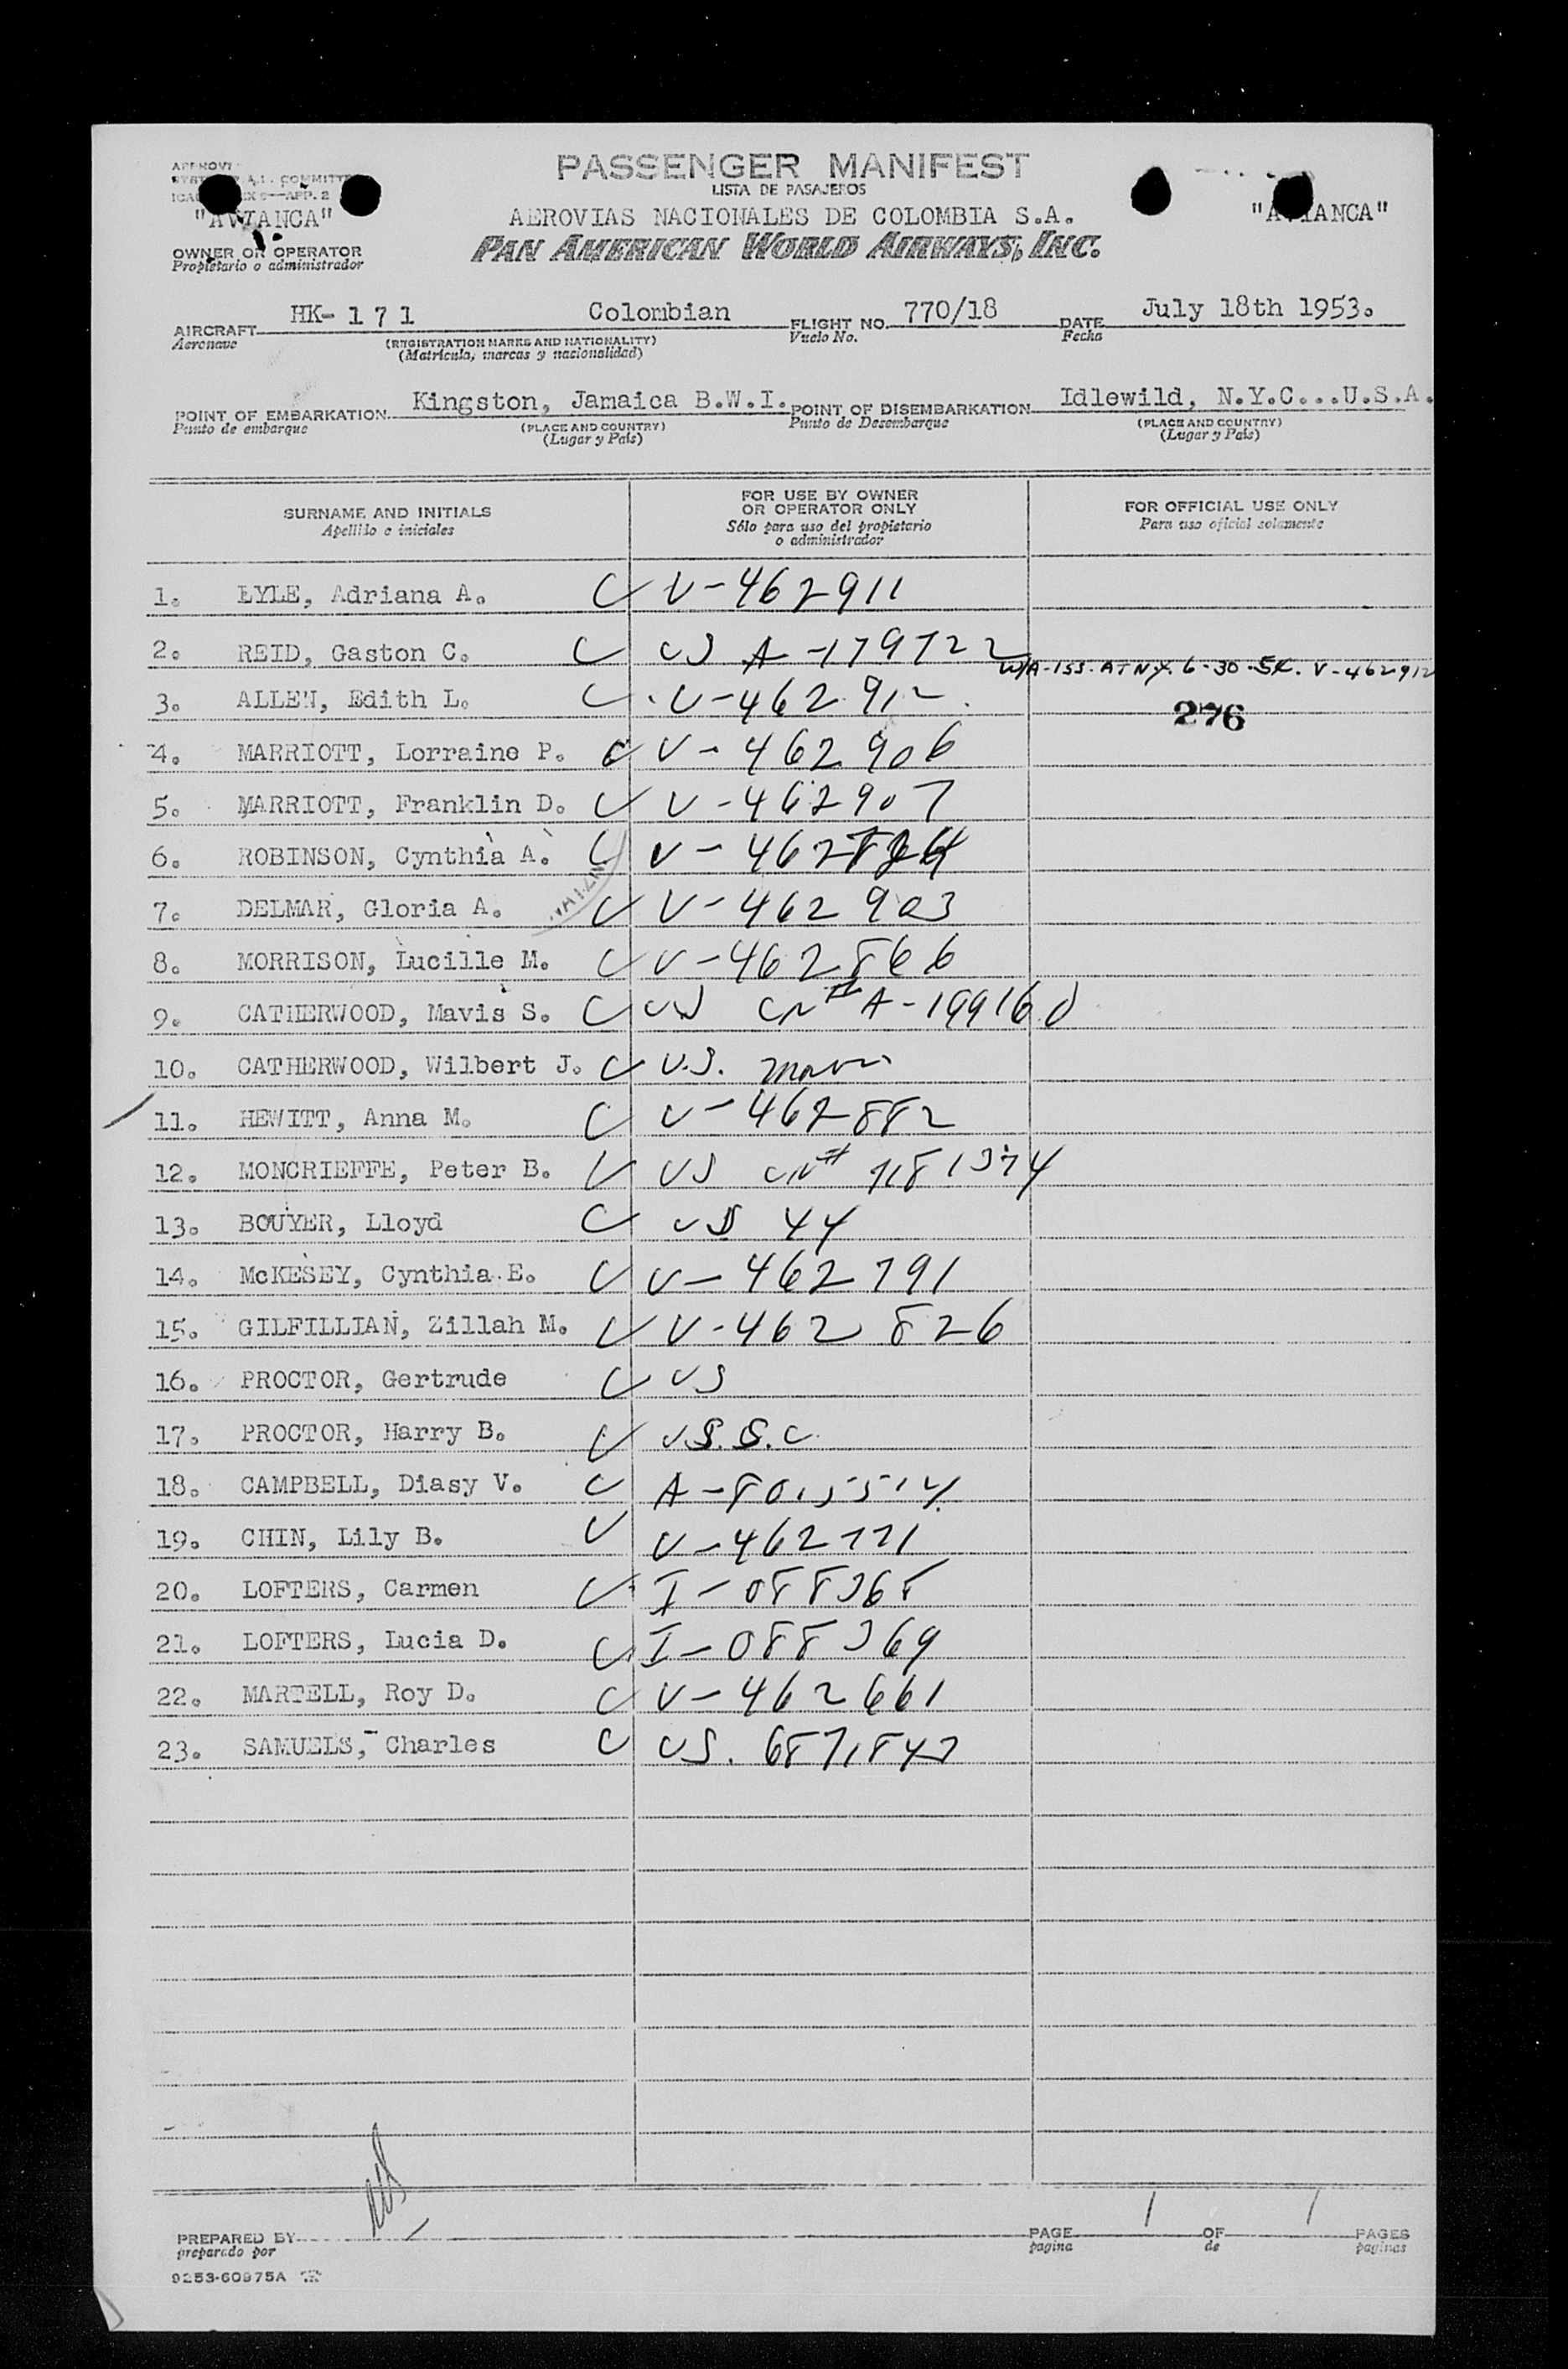 PASSENGER MANIFEST
LISTA DE PASAJEROS
"AVIANCA" AEROVIAS NACIONALES DE COLOMBIA S.A. "AVIANCA"
PAN AMERICAN WORLD AIRWAYS, INC.
OWNER OR OPERATOR
Propietario o administrador
AIRCRAFT HK-171 Colombian FLIGHT NO. 770/18 DATE July 18th 1953.
Aeronave (REGISTRATION MARKS AND NATIONALITY) Vuelo No. Fecha
(Matrícula, marcas y nacionalidad)
POINT OF EMBARKATION Kingston, Jamaica B.W.I. POINT OF DISEMBARKATION Idlewild, N.Y.C...U.S.A.
Punto de embarque (PLACE AND COUNTRY) Punto de Desembarque (PLACE AND COUNTRY)
(Lugar y País) (Lugar y País)
SURNAME AND INITIALS
Apellido e iniciales
FOR USE BY OWNER
OR OPERATOR ONLY
Sólo para uso del propietario
o administrador
FOR OFFICIAL USE ONLY
Para uso oficial solamente
1. LYLE, Adriana A. V-462911
2. REID, Gaston C. US A-179722
3. ALLEN, Edith L. V-462912 A-155. AT N.Y. 6-30-54. V-462912
276
4. MARRIOTT, Lorraine P. V-462906
5. MARRIOTT, Franklin D. V-462907
6. ROBINSON, Cynthia A.
7. DELMAR, Gloria A. V-462903
8. MORRISON, Lucille M. V-462866
9. CATHERWOOD, Mavis S. US CN# A-199160
10. CATHERWOOD, Wilbert J. U.S.
11. HEWITT, Anna M. V-462882
12. MONCRIEFFE, Peter B. US CN# 7181374
13. BOUYER, Lloyd US 44
14. McKESEY, Cynthia E. V-462791
15. GILFILLIAN, Zillah M. V-462826
16. PROCTOR, Gertrude US
17. PROCTOR, Harry B. U.S.S.C.
18. CAMPBELL, Diasy V. A-8015514
19. CHIN, Lily B. V-462771
20. LOFTERS, Carmen I-088368
21. LOFTERS, Lucia D. I-088369
22. MARTELL, Roy D. V-462661
23. SAMUELS, Charles US.
PREPARED BY PAGE 1 OF 1 PAGES
preparado por pagina de paginas
9253-60975A